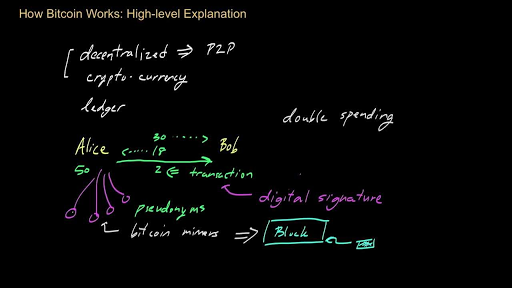 How Bitcoin Works: High-level Explanation
decentralized ⇒ P2P
crypto-currency
ledger
double spending
Alice
30 ......>
<..... 18
Bob
50
2 <= transaction
digital signature
pseudonyms
bitcoin miners ⇒ Block